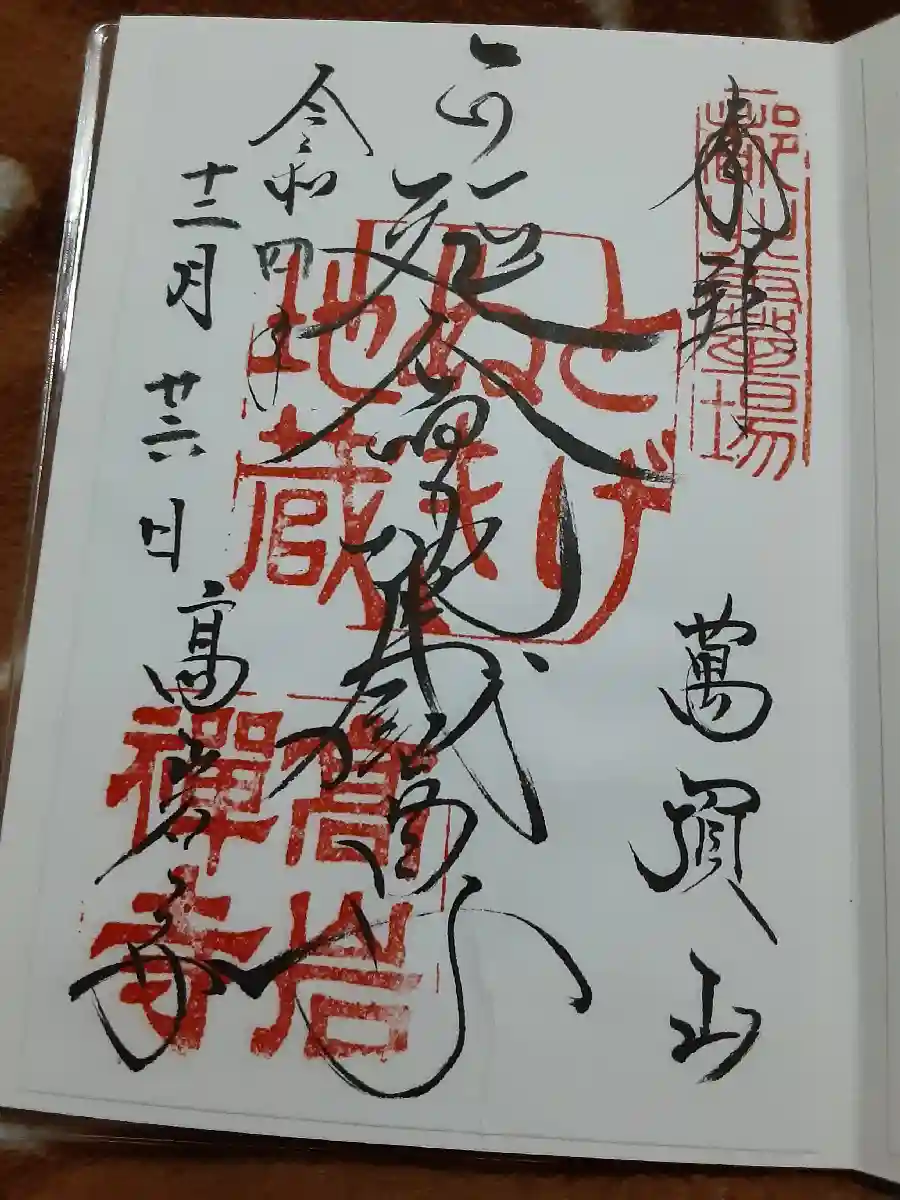 奉拝
萬頂山
延命地蔵尊
令和四年
十二月廿六日 高岩寺
とげ
ぬき
地蔵
髙岩
禪寺